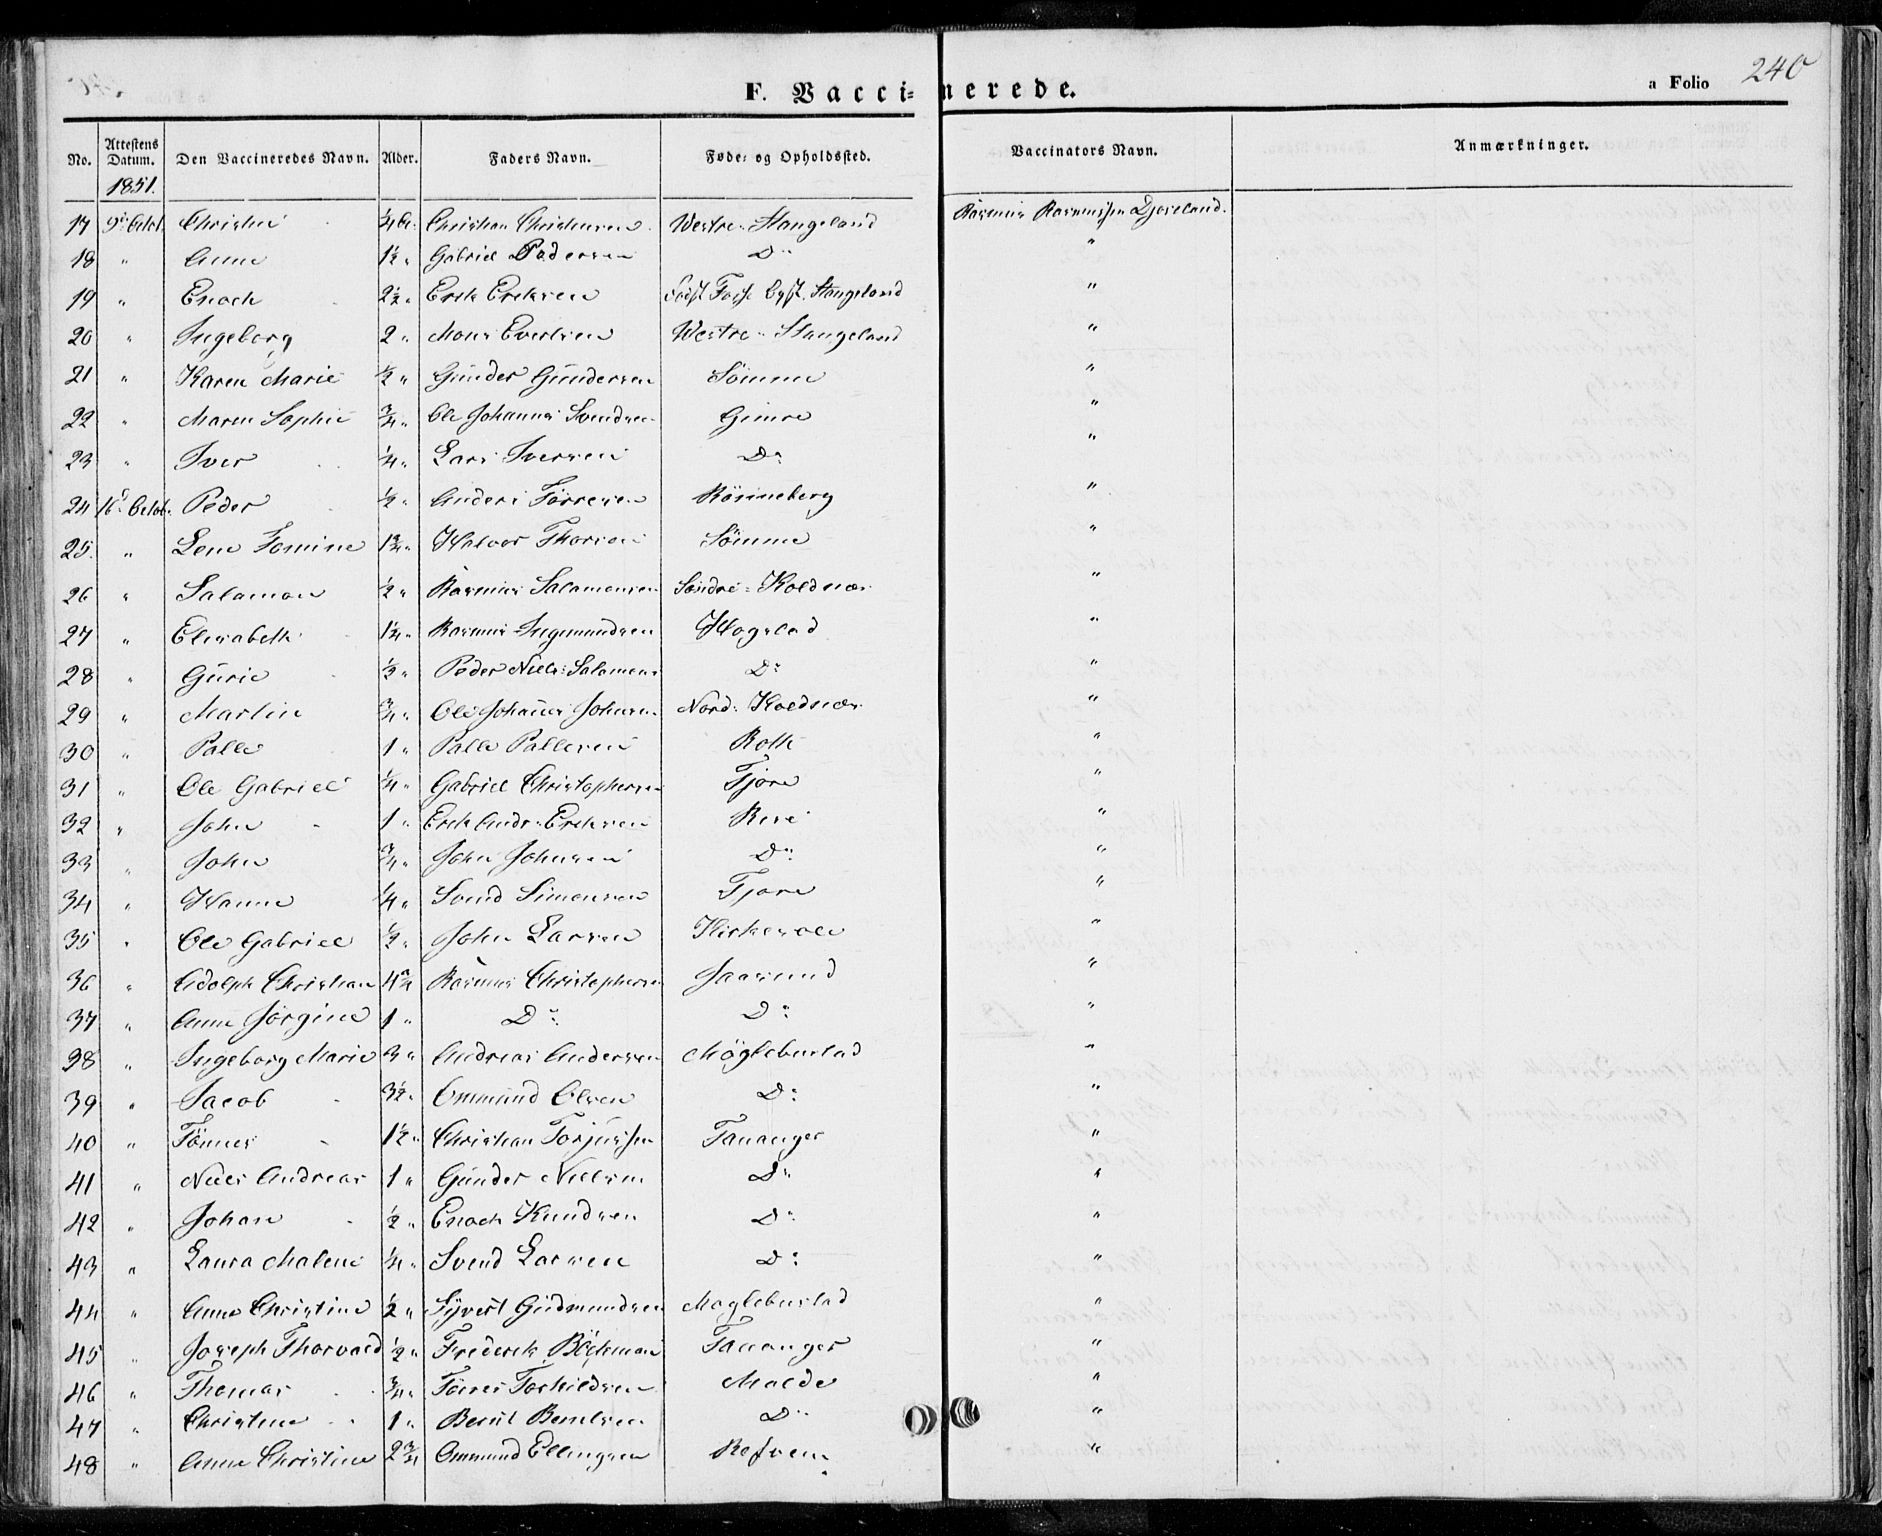 F. Vaccinerede.
a Folio 240
No. Attestens Datum. Den Vaccineredes Navn. Alder. Faders Navn. Føde- og Opholdssted. Vaccinators Navn. Anmærkninger.
1851.
17 9d Octob. Christen 1/4 Christian Christensen Westre Stangeland Rasmus Rasmussen
18 " Anne 1 1/2 " Gabriel Pedersen Do "
19 " Enoch 2 1/2 " Erik Eriksen Stangeland "
20 " Ingeborg 2 " Mons Evertsen Westre Stangeland "
21 " Karen Marie 1/2 " Gunder Gundersen Sömme "
22 " Maren Sophie 3/4 " Ole Johannes Svendsen Gimre "
23 " Iver 1/4 " Lars Iversen Do "
24 16d Octob. Peder 1/2 " Anders Törresen Rönneberg "
25. " Lene Tomine 1 3/4 " Halvor Thorsen Sömme "
26 " Salamon 1/2 " Rasmus Salamonsen Söndre Koldnæs "
27 " Elisabeth 1 1/4 " Rasmus Ingemundsen Hogstad "
28 " Gurie 1/2 " Peder Niels Salamons Do "
29 " Martin 3/4 " Ole Johannes Johnsen Nord Koldnæs "
30 " Palle 1 " Palle Pallesen Roth "
31 " Ole Gabriel 1/4 " Gabriel Christophersen Tjore "
32 " John 1 " Erik Andr. Eriksen Rese "
33 " John 3/4 " John Johnsen Do "
34 " Hanne 1/4 " Svend Simonsen Tjore "
35 " Ole Gabriel 1/2 " John Larsen Kirkevole "
36 " Adolph Christian 4 3/4 Rasmus Christophersen Jaasund "
37 " Anne Jörgine 1 " Do Do "
38 " Ingeborg Marie 3 " Andreas Andersen Möglebustad "
39 " Jacob 3 1/2 " Ommund Olsen Do "
40 " Tönnes 1 1/2 " Christian Torjussen Tananger "
41 " Niels Andreas 1 " Gunder Nielsen Do "
42 " Johan 1/2 " Enoch Knudsen Do "
43 " Laura Malene 1/4 " Svend Larsen Do "
44 " Anne Christine 1/2 " Syvert Gudmundsen Moglebustad "
45 " Joseph Thorvald 1/2 " Frederik Böckman Tananger "
46 " Thomas 3/4 " Törres Torkildsen Molde "
47 " Christine 1 " Bernt Berntsen Do "
48 " Anne Christine 2 3/4 Ommund Ellingsen Refsem "